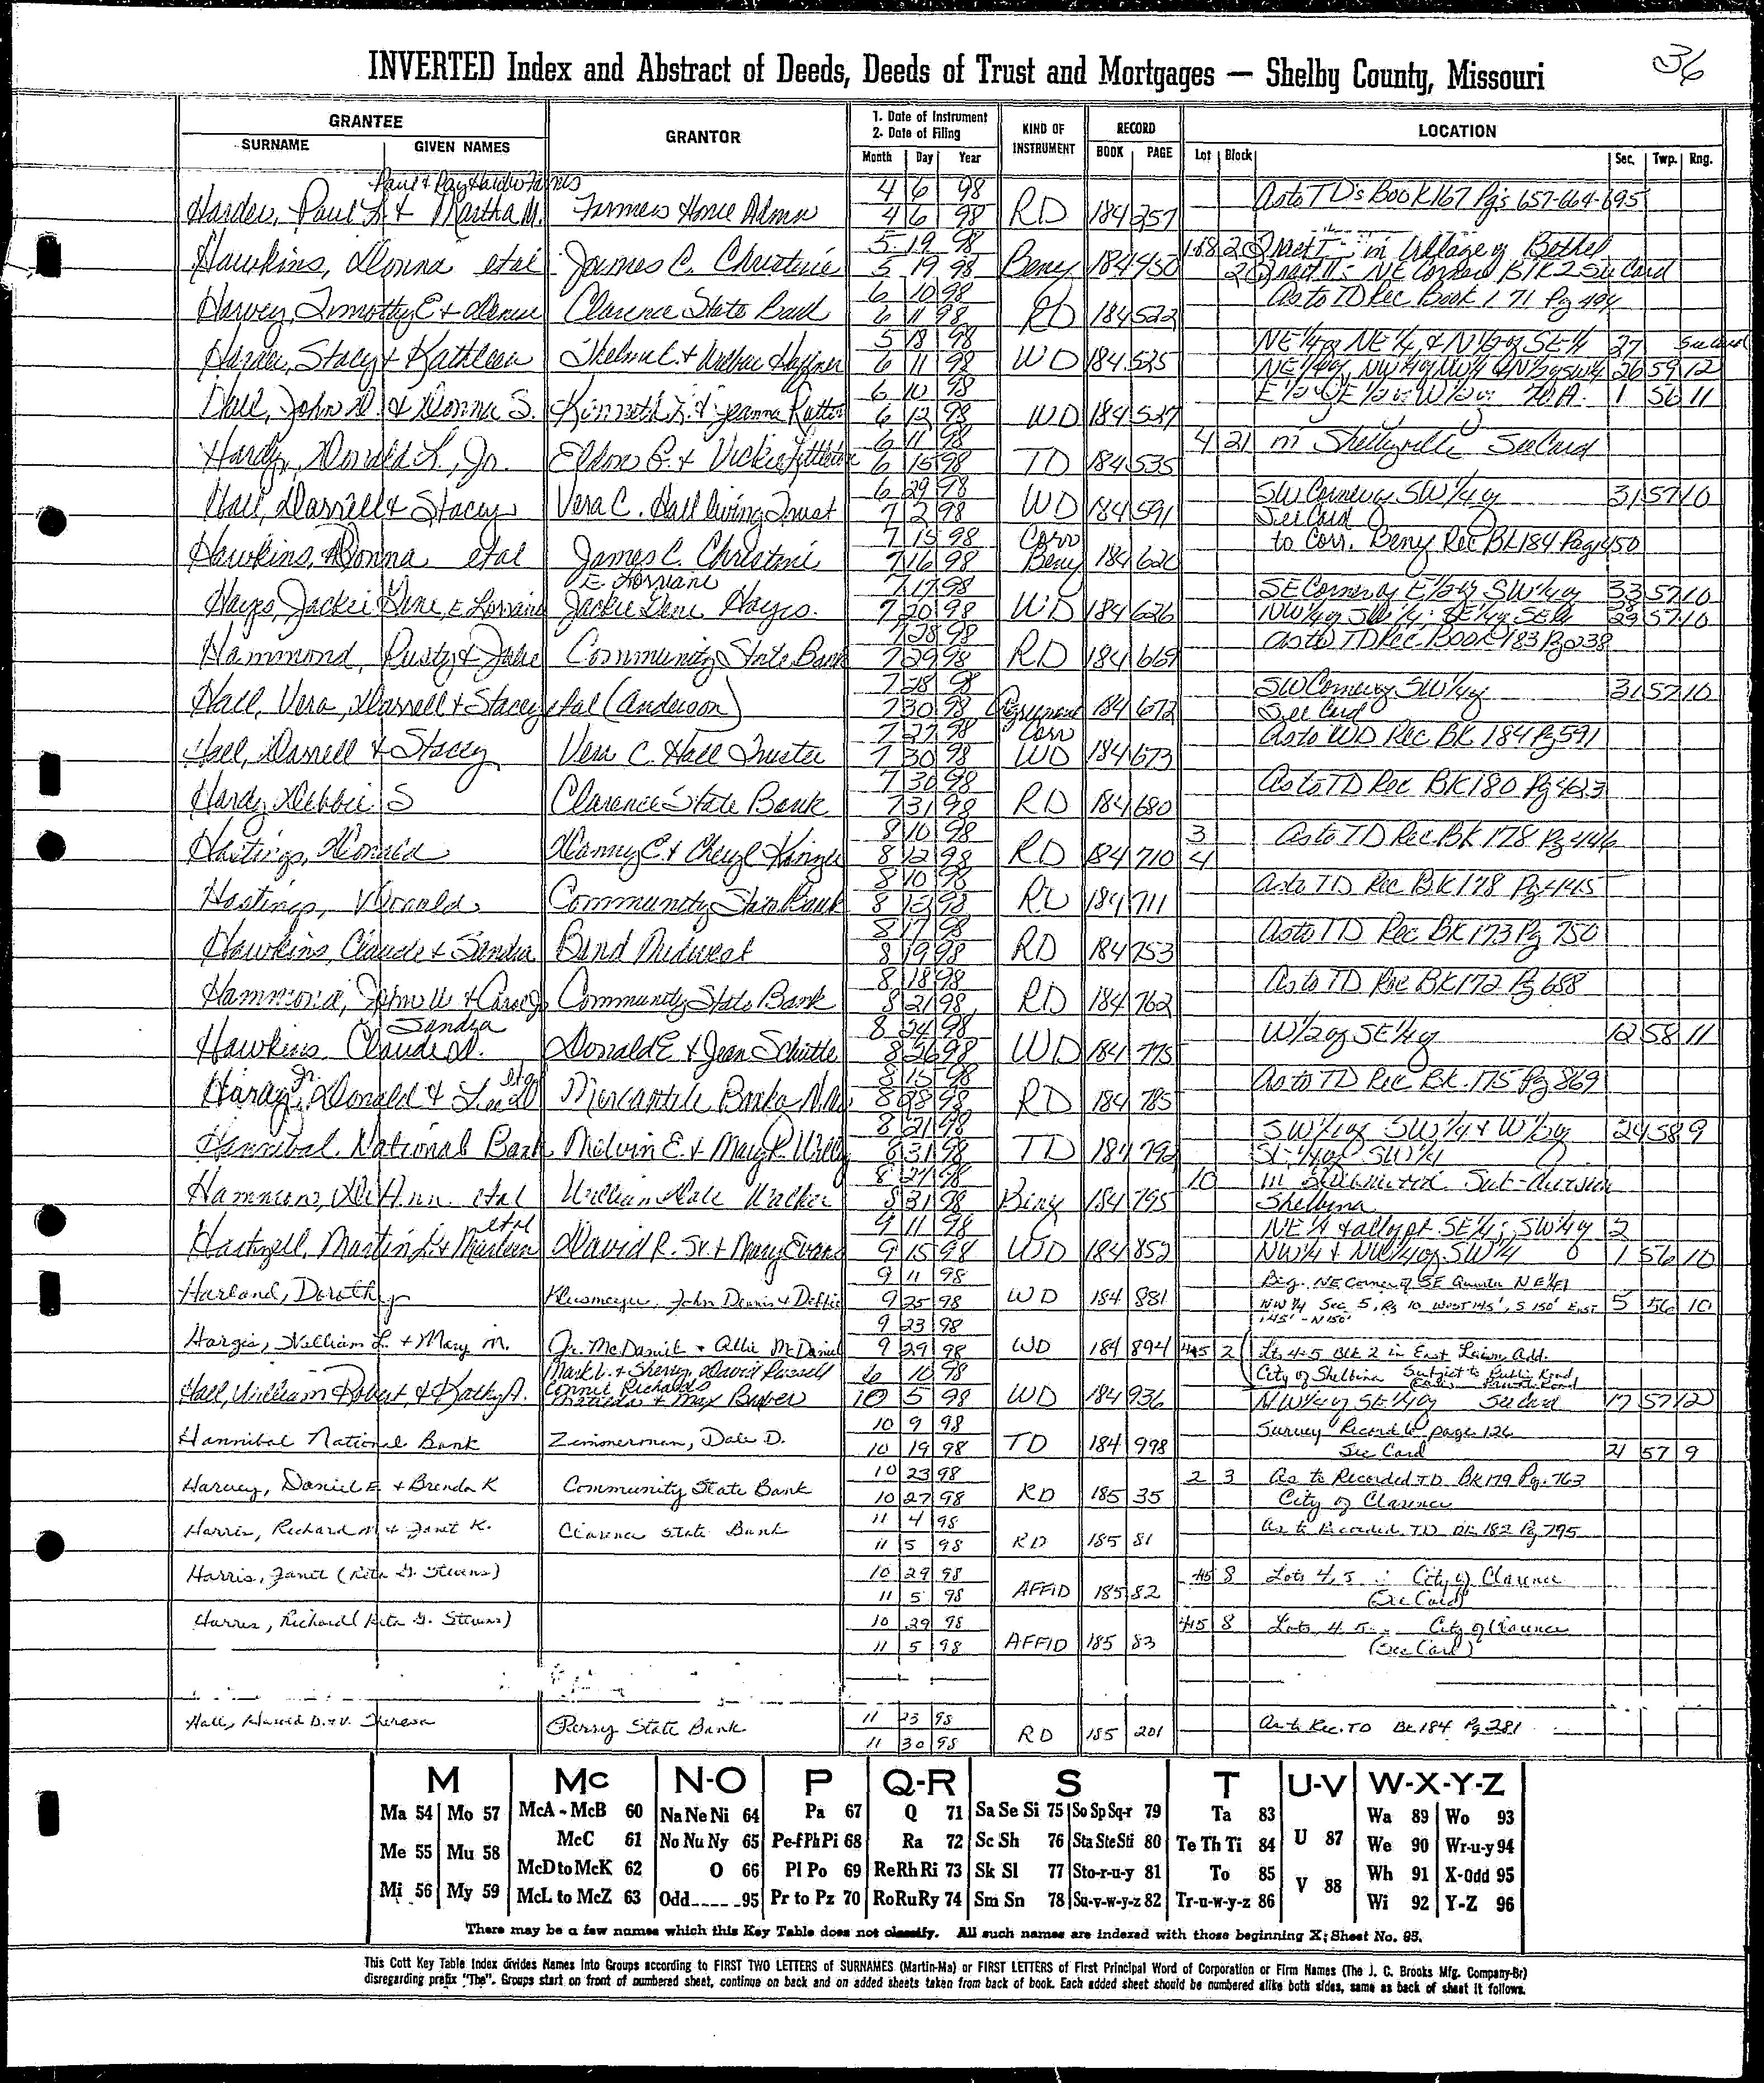 36
INVERTED Index and Abstract of Deeds, Deeds of Trust and Mortgages — Shelby County, Missouri
GRANTEE GRANTOR 1. Date of Instrument 2. Date of Filing KIND OF INSTRUMENT RECORD LOCATION
SURNAME GIVEN NAMES Month Day Year BOOK PAGE Lot Block Sec. Twp. Rng.
4 6 98 As to TD's Book 167 Pgs 657-664-695
Harder, Paul L & Martha M. Farmers Home Admn 4 6 98 RD 184 257
5 19 98 in Village of Bethel
Hawkins, Donna etal James C. Christine 5 19 98 Beny 184 450 NE Corner Blk 2 See Card
6 10 98 As to TD Rec Book 171 Pg 494
Harvey, Timothy E & Clarence State Bank 6 11 98 RD 184 522
5 18 98 NE 1/4 of NE 1/4 & N 1/2 of SE 1/4 27 See Card
Stacy & Kathleen 6 11 98 WD 184 525 26 59 12
6 10 98 70 A. 1 56 11
Hall, John D. & Donna S. Kenneth L. & Jeanna 6 12 98 WD 184 527
6 11 98 4 21 in Shelbyville See Card
Hardy, Donald L., Jr. Eldon & Vickie 6 15 98 TD 184 535
6 29 98 SW Corner of SW 1/4 of 31 57 10
Hall, Darrell & Stacey Vera C. Hall Living Trust 7 2 98 WD 184 591 See Card
7 15 98 Corr to Corr. Beny Rec Bk 184 Page 450
Hawkins, Donna etal James C. Christine 7 16 98 Beny 184 620
E. Lorriane 7 17 98 SE Corner of E 1/2 of SW 1/4 of 33 57 10
Hayes, Jackie Gene, E Lorraine Jackie Gene Hayes. 7 20 98 WD 184 626 57 10
7 28 98 As to TD Rec Book 183 Pg 238
Hammond, Rusty & Julie Community State Bank 7 29 98 RD 184 669
7 28 98 SW Corner of SW 1/4 of 31 57 10
Hall, Vera, Darrell & Stacey etal (Anderson) 7 30 98 Agreement 184 672 See Card
7 27 98 Corr As to WD Rec Bk 184 Pg 591
Hall, Darrell & Stacey Vera C. Hall Trustee 7 30 98 WD 184 673
7 30 98 As to TD Rec Bk 180 Pg 423
Hardy, Debbie S Clarence State Bank 7 31 98 RD 184 680
8 10 98 3 As to TD Rec Bk 178 Pg 446
Hastings, Donald Danny E & Cheryl 8 12 98 RD 184 710 4
8 10 98 As to TD Rec Bk 178 Pg 445
Hastings, Donald Community State Bank 8 12 98 RD 184 711
8 17 98 As to TD Rec Bk 173 Pg 750
Hawkins, Claude & Sandra Bank Midwest 8 19 98 RD 184 753
8 18 98 As to TD Rec Bk 172 Pg 688
Hammond, John W & Community State Bank 8 21 98 RD 184 762
Sandra 8 24 98 W 1/2 of SE 1/4 of 12 58 11
Hawkins Claude D. Donald E & Jean Schutte 8 26 98 WD 184 775
Jr. etal 8 15 98 As to TD Rec Bk. 175 Pg 869
Hardy, Donald & Mercantile Bank 8 28 98 RD 184 785
8 21 98 SW 1/4 of SW 1/4 & W 1/2 of 24 58 9
Hannibal National Bank Melvin E. & Mary 8 31 98 TD 184 792 SE 1/4 of SW 1/4
8 27 98 10
etal William Dale Walker 8 31 98 Beny 184 795 Shelbina
etal 9 11 98 2
Martin L. & David R. Sr. & Mary Evans 9 15 98 WD 184 852 NW 1/4 & NW 1/4 of SW 1/4 1 56 10
9 11 98 Beg. NE Corner of SE Quarter NE 1/4
Harland, Dorothy Klusmeyer, John Dennis & Debbie 9 25 98 WD 184 881 NW 1/4 Sec 5, Rg 10 West 145', S 150' East 5 56 10
145' - N 150'
9 23 98
Hargis, William L. & Mary M. Jr. McDaniel & Allie McDaniel 9 29 98 WD 184 894 4 5 2 Lts 4-5 Blk 2 in East Lawn Add.
Mark L. & Sherry, David Russell 10 98 City of Shelbina Subject to Public Road
Connie Richards
Hall, William Robert & Kathy A. 10 5 98 WD 184 936 NW 1/4 of SE 1/4 of See Card 17 57 12
10 9 98 Survey Record 6 page 126
Hannibal National Bank Zimmerman, Dale D. 10 19 98 TD 184 998 See Card 21 57 9
10 23 98 2 3 As to Recorded TD Bk 179 Pg. 763
Harvey, Daniel E & Brenda K Community State Bank 10 27 98 RD 185 35 City of Clarence
11 4 98 As to Recorded TD Bk 182 Pg 795
Harris, Richard M & Janet K. Clarence State Bank 11 5 98 RD 185 81
10 29 98
Harris, Janet (Rita G. Stevens) 11 5 98 AFFID 185 82 4 5 8 Lots 4, 5 City of Clarence
(See Card)
10 29 98
Harris, Richard (Rita G. Stevens) 11 5 98 AFFID 185 83 4 5 8 Lots 4, 5 City of Clarence
(See Card)
11 23 98
Hall, Harold D. & V. Theresa Perry State Bank 11 30 98 RD 185 201 As to Rec. TD Bk 184 Pg 281
M Mc N-O P Q-R S T U-V W-X-Y-Z
Ma 54 Mo 57 McA - McB 60 Na Ne Ni 64 Pa 67 Q 71 Sa Se Si 75 So Sp Sq-r 79 Ta 83 Wa 89 Wo 93
Me 55 Mu 58 McC 61 No Nu Ny 65 Pe-f Ph Pi 68 Ra 72 Sc Sh 76 Sta Ste Sti 80 Te Th Ti 84 U 87 We 90 Wr-u-y 94
McD to McK 62 O 66 Pl Po 69 Re Rh Ri 73 Sk Sl 77 Sto-r-u-y 81 To 85 Wh 91 X-Odd 95
Mi 56 My 59 McL to McZ 63 Odd 95 Pr to Pz 70 Ro Ru Ry 74 Sm Sn 78 Su-v-w-y-z 82 Tr-u-w-y-z 86 V 88 Wi 92 Y-Z 96
There may be a few names which this Key Table does not classify. All such names are indexed with those beginning X; Sheet No. 95.
This Cott Key Table Index divides Names into Groups according to FIRST TWO LETTERS of SURNAMES (Martin-Ma) or FIRST LETTERS of First Principal Word of Corporation or Firm Names (The J. C. Brooks Mfg. Company-Br)
disregarding prefix "The". Groups start on front of numbered sheet, continue on back and on added sheets taken from back of book. Each added sheet should be numbered alike both sides, same as back of sheet it follows.